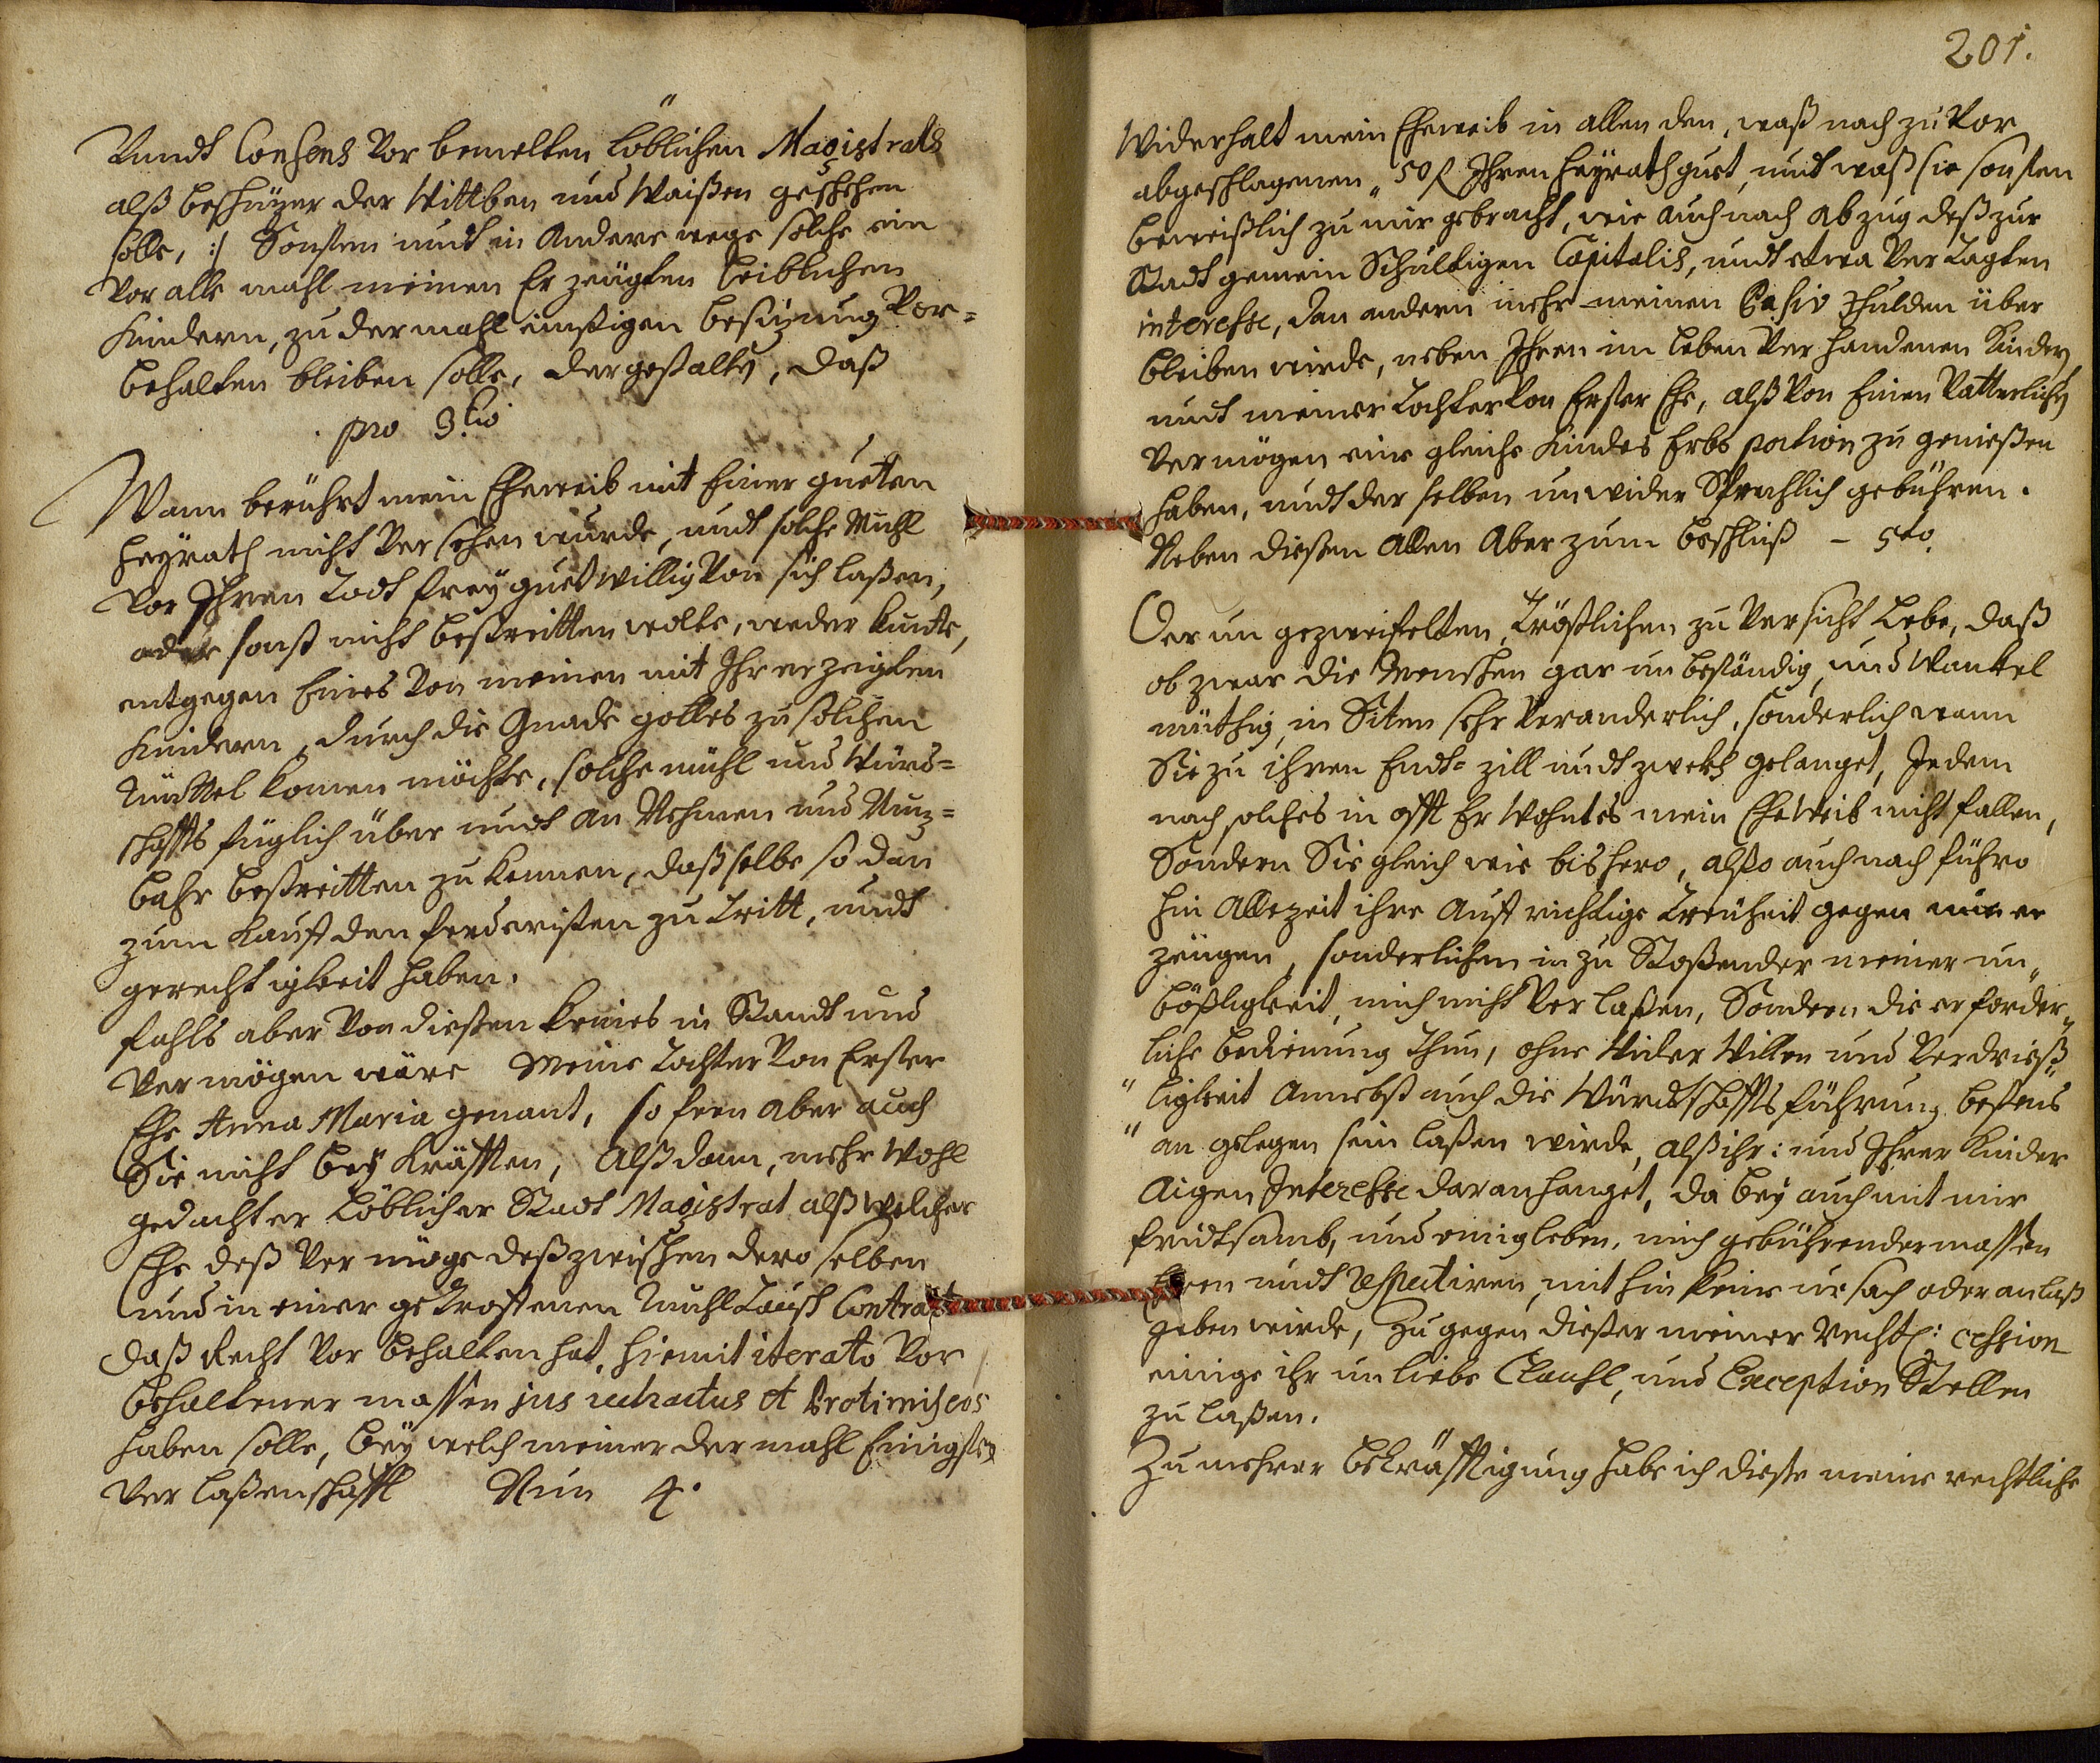 Vnndt Consens Vor bemelten Löblichen Magistrats
alß beschüzer der Wittben und Waißen geschehen
solle, :/ Sonsten undt in Andere wege solche ein
Vor alle mahl meinen Er zeugten Leiblichen
Kindern, zu dermahl einßigen besüzung Vor=
behalten bleiben solle, dergestalten, daß
pro 3tio
Wann berührt mein Eheweib mit Einer guetten
Heÿrath nicht Ver sehen wurde, undt solche Mühl
Vor Ihren Todt freÿ guetwillig Von sich laßen,
oder sonst nicht bestreitten wolte, weder kundte,
entgegen Eines Von meinen mit Ihr erzeigten
Kindern, durch die Gnade gottes zu solchen
Mittel komen möchte, solche mühl und Würd=
schaffts füglich über undt an Nehmen und Nuz=
bahr bestreitten zu können, daß selbe so dan
zum Kauff den Erd eristen zu Tritt, undt
gerechtigkeit haben.
fahls aber Von dießen keines in Standt und
Vermögen wäre Meine Tochter Von Erster
Ehe Anna Maria genant, so fern aber auch
Sie nicht beÿ Kräfften, Alßdann, mehr Wohl
gedachter Löblicher Stadt Magistrat alß welcher
Ehe deß Ver möge deß zwischen dero selben
und in einer getroffenen Muhl Kauff Contract
daß Recht Vor behalten hat, hiemit iterato Vor
behaltener massen jus retractus et Protimiseos
haben solle, beÿ welch meiner der mahl Einigsten
Ver laßenschafft Nun 4.
201.
Widerhalt mein Eheweib in allen den, waß nach zu Vor
abgeschlagenen „50 f Ihren Heÿrathguet, undt waß sie sonsten
beweißlich zu mir gebracht, wie auch nach abzug deß zur
Stadt gemein Schultigen Capitalis, undt etwa Ver Tagten
interesse, dan andern mehr meinen Pasiv Schulden über
bleiben wirde, neben Ihren im Leben Ver handenen Kindern
undt meiner Tochter Von Erster Ehe, alß Von Einen Vatterlichen
Vermögen eine gleiche Kindes Erbs portion zu genießen
haben, undt der selben unwider Sprechlich gebühren.
Neben dießen Allen Aber zum beschluß – 5to
Der un gezweifelten Tröstlichen zu Versicht Lebe, daß
ob zwar die Menschen gar un beständig, und Wankel
müthig, in Siten sehr Veranderlich, sonderlich wann
Sie zu ihren Endt= zill undt zweckh gelanget, Jedem
nach solches in offt Er Wohntes mein EheWeib nicht fallen,
Sondern Sie gleich wie bishero, alßo auch nach führo
hin Allezeit ihre Auff richtige Treüheit gegen mir er
zeugen, sonderlichen in zu Stoßender meiner un„
bößligkeit, mich nicht Ver laßen, Sondern die erforder„
liche bedienung Thun, ohne Wider Willen und Verdrieß„
„ligkeit Annebst auch die Würdtschaffts führung bestens
„an gelegen sein laßen wirde, alß ihr: und Ihrer Kinder
Aigen Interesse daran hanget, da beÿ auch mit mir
fridtsamb, und einig leben, mich gebührendermassen
Ehren undt respectiren, mit hin keine ursach oder anlaß
geben wirde, zu gegen dießer meiner rechtl: cession
einige ihr un liebe Clausl, und Exception Stellen
zu laßen.
Zu mehrer bekräfftigung habe ich dieße meine rechtliche